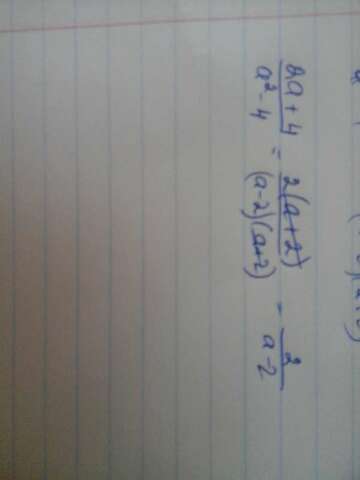 2a+4 / a²-4 = 2(a+2) / (a-2)(a+2) = 2 / a-2